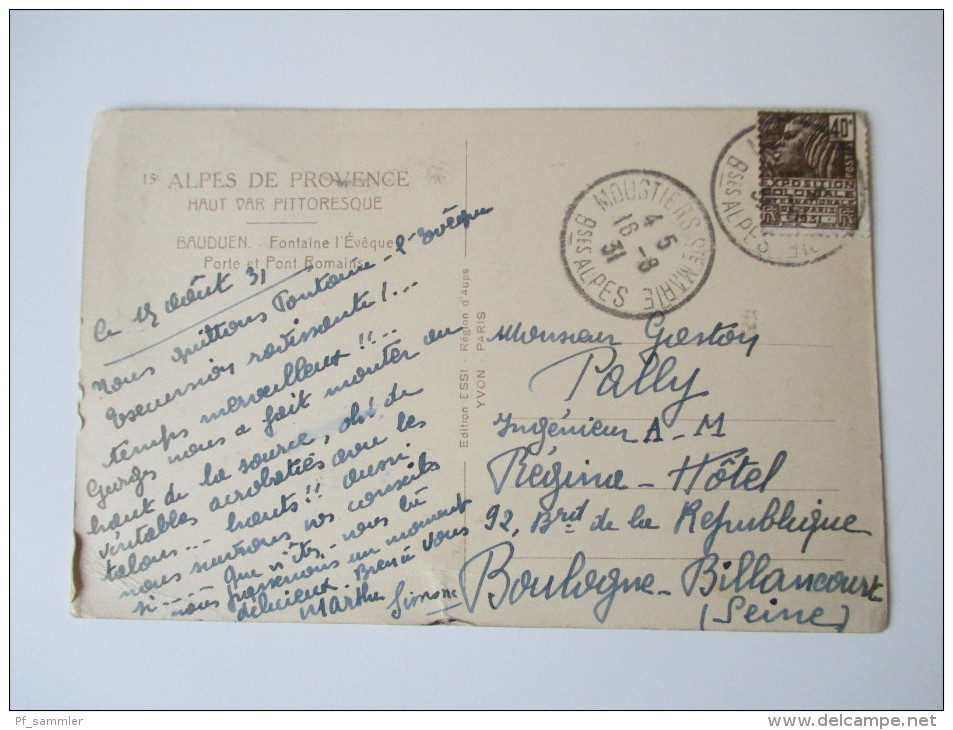 15 ALPES DE PROVENCE
HAUT VAR PITTORESQUE
BAUDUEN. - Fontaine l'Évêque
Porte et Pont Romains
Ce 15 août 31
Nous quittons Fontaine-l'Evêque
Excursion ravissante!...
temps merveilleux!!...
nous a fait monter au
haut de la source, de
véritables acrobaties avec les
talons... hauts!! aussi
nous suivrons vos conseils
si ...... Que n'êtes-vous là
nous passerions un moment
délicieux. Bien à vous
Marthe Simone
Edition ESSI - Région d'Aups
YVON - PARIS
MOUSTIERS STE MARIE
4 5
16-8
31
BSES ALPES
BSES ALPES
40c
POSTES
EXPOSITION
COLONIALE
INTERNATIONALE
PARIS
1931
Monsieur Gaston
Pally
Ingénieur A-M
Régina-Hôtel
92, Brd de la Republique
Boulogne-Billancourt
(Seine)
Pf_sammler
delcampe.net